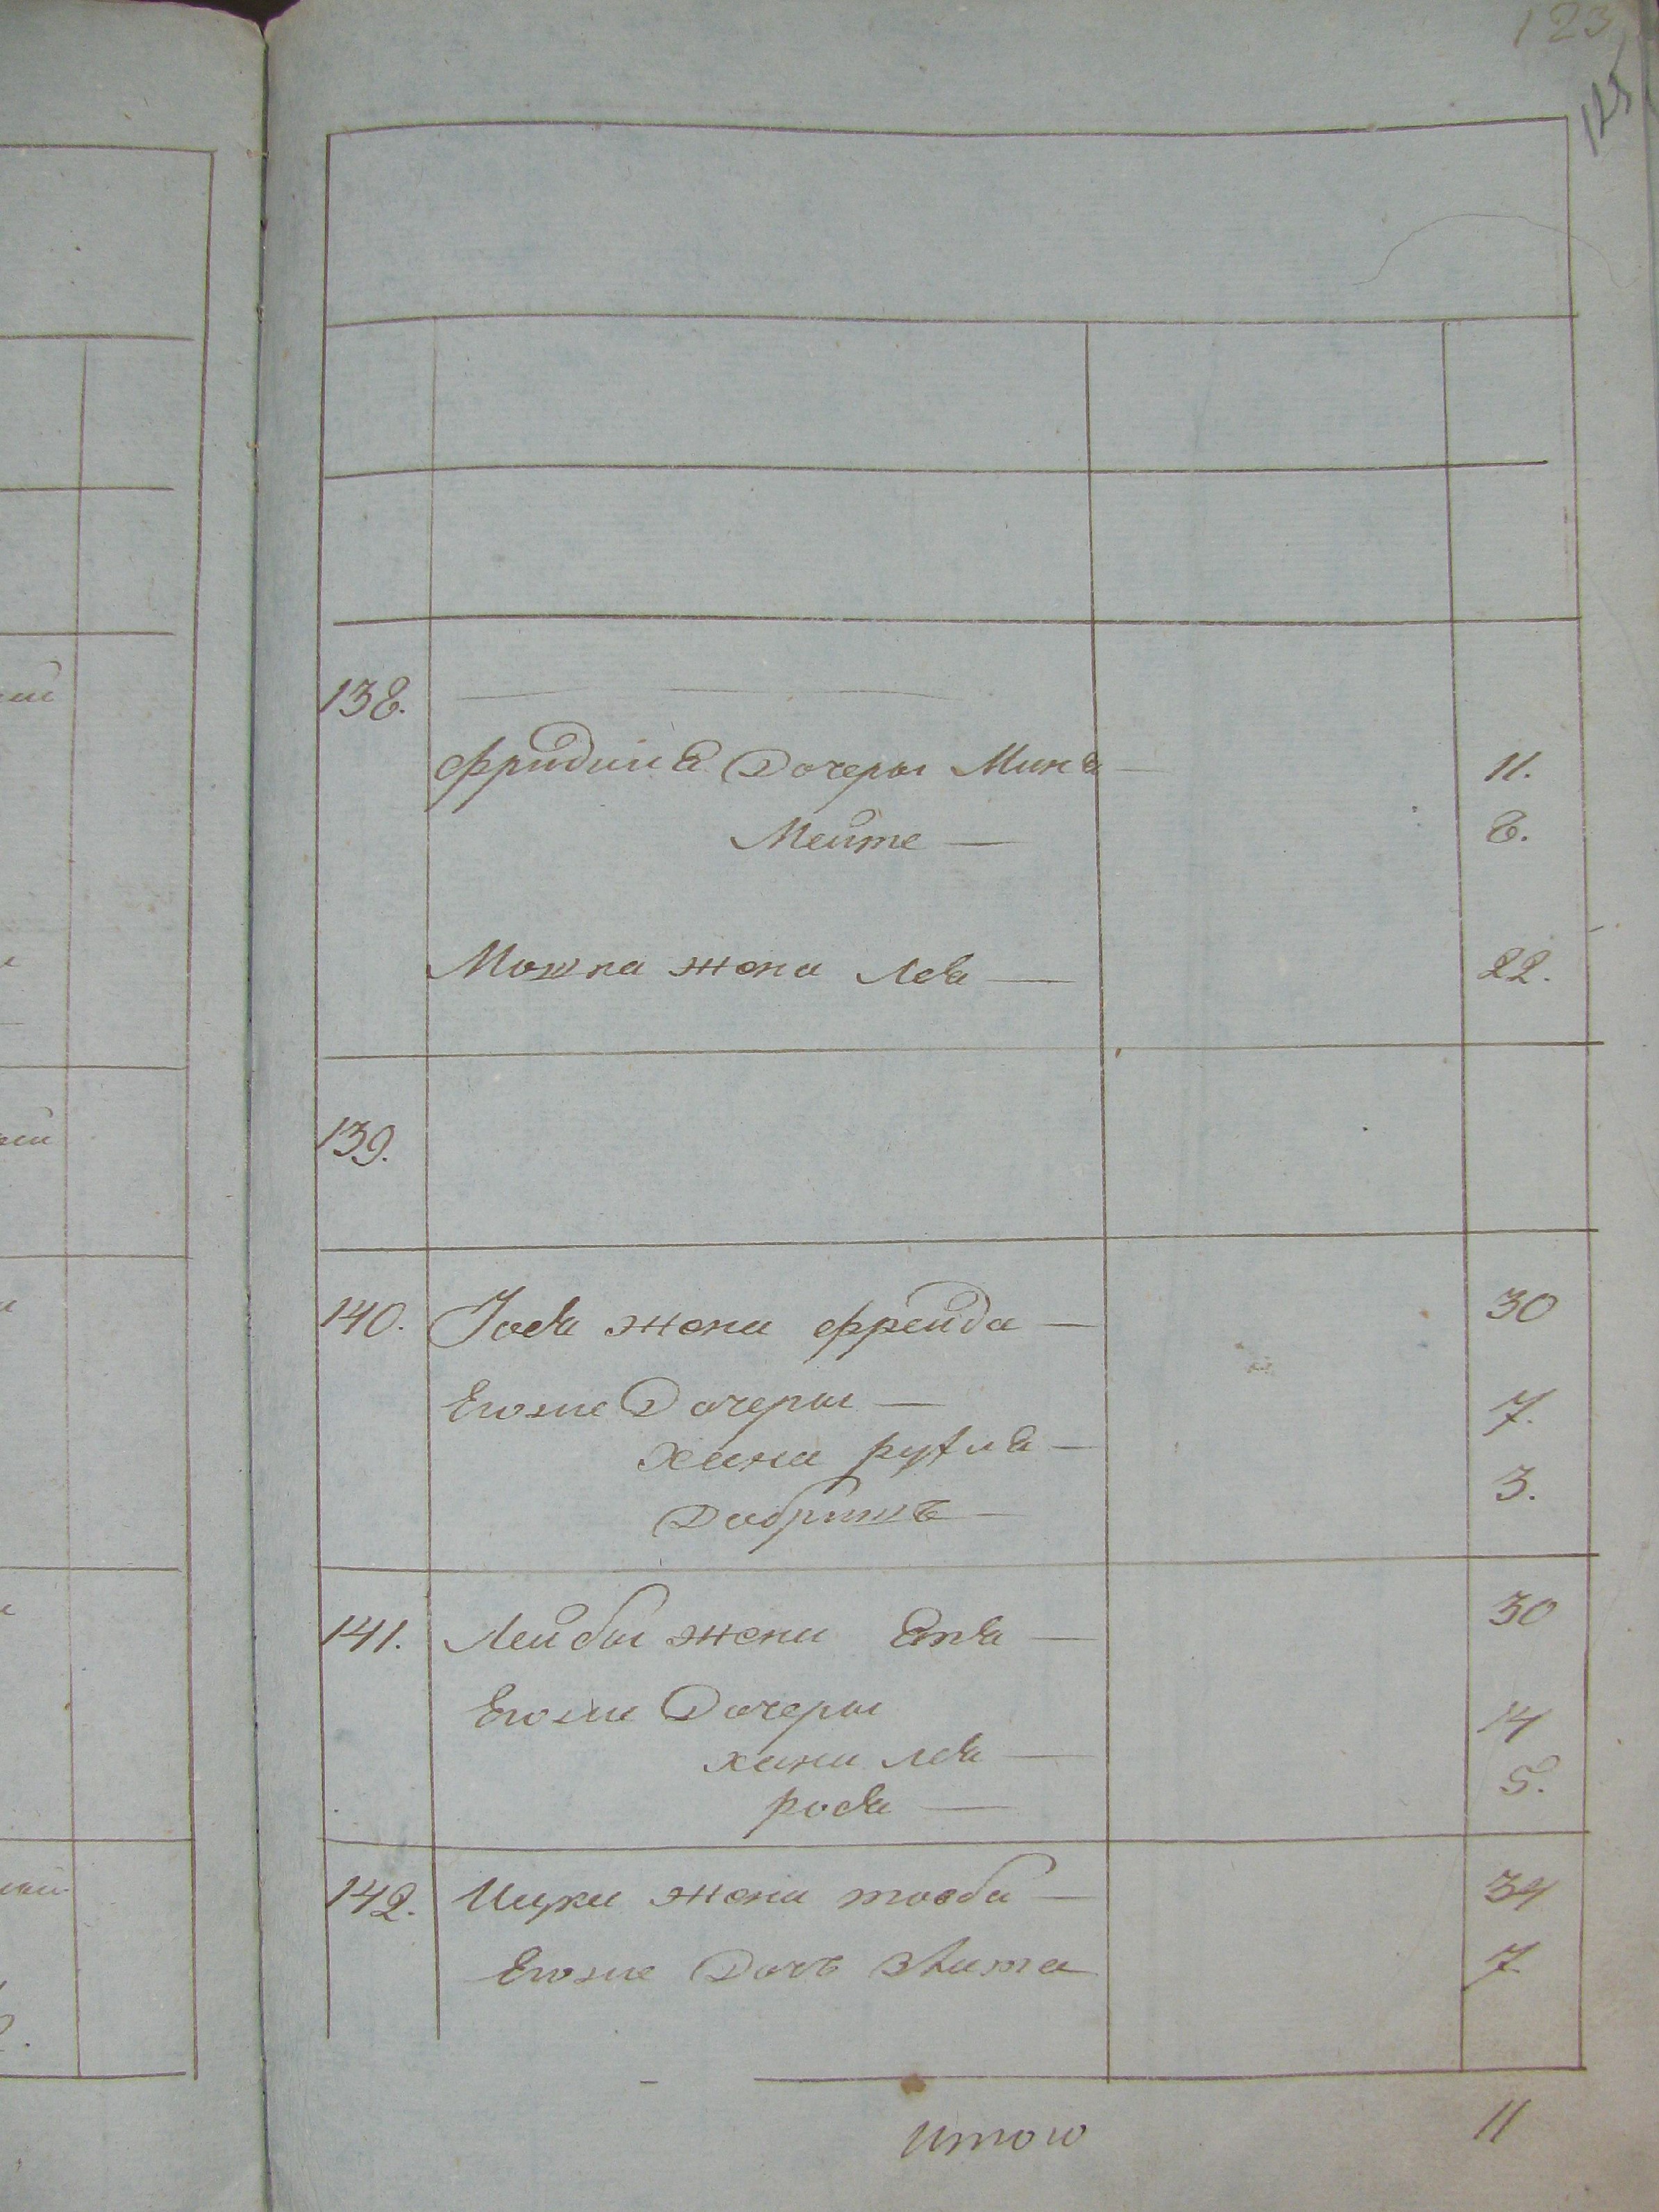 123
125
138.
Фридиша Дочеры Мина — 11.
Мейте — 8.
Мошка жена Лея — 22.
139.
140. Іося жена Фрейда — 30
Егоже Дочеры — 7.
Хана рухля —
Добришъ — 3.
141. Лейбы жена Етя — 30
Егоже Дочеры 14
хана лея —
рося — 5.
142. Ицки жена тоба — 34
Егоже Дочь 7
итого 11